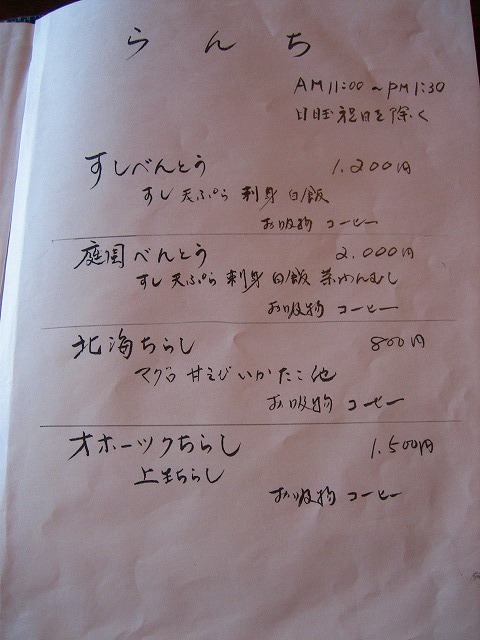 らんち
AM11:00~PM1:30
日曜祝日を除く
すしべんとう 1.200円
すし 天ぷら 刺身 白飯
お吸物 コーヒー
庭園べんとう 2.000円
すし 天ぷら 刺身 白飯 茶わんむし
お吸物 コーヒー
北海ちらし 800円
マグロ 甘えび いか たこ 他
お吸物 コーヒー
オホーツクちらし 1.500円
上生ちらし
お吸物 コーヒー